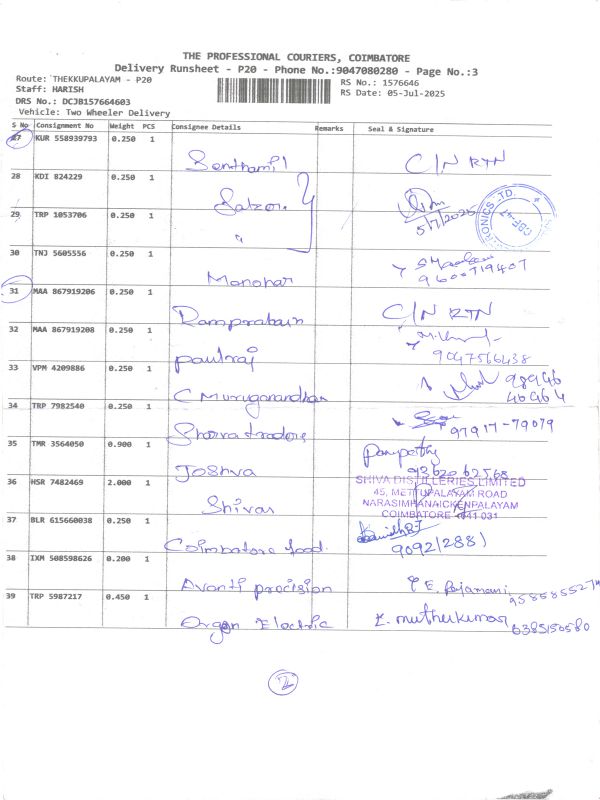 THE PROFESSIONAL COURIERS, COIMBATORE
Delivery Runsheet - P20 - Phone No.:9047080280 - Page No.:3
Route: THEKKUPALAYAM - P20
RS No.: 1576646
Staff: HARISH
RS Date: 05-Jul-2025
DRS No.: DCJB157664603
Vehicle: Two Wheeler Delivery
S No Consignment No Weight PCS Consignee Details Remarks Seal & Signature
27 KUR 558939793 0.250 1
Senthamil C/N RTN
28 KDI 824229 0.250 1
5/7/2025
29 TRP 1053706 0.250 1
"
30 TNJ 5605556 0.250 1
Manohar 9600719407
31 MAA 867919206 0.250 1
Ramprabain C/N RTN
32 MAA 867919208 0.250 1
Paulraj 9047566438
33 VPM 4209886 0.250 1
C Muruganandhan 98946
46464
34 TRP 7982540 0.250 1
Shorva traders 97917-79079
35 TMR 3564050 0.900 1
Joshva 9362062568
36 HSR 7482469 2.000 1
SHIVA DISTILLERIES LIMITED
45, METTUPALAYAM ROAD
NARASIMHANAICKENPALAYAM
COIMBATORE - 641 031
Shivas
37 BLR 615660038 0.250 1
Coimbatore food. 909212881
38 IXM 508598626 0.200 1
Avanti precision E. Rajamani
9585855274
39 TRP 5987217 0.450 1
Organ Electric E. muthukumar
6385150580
2